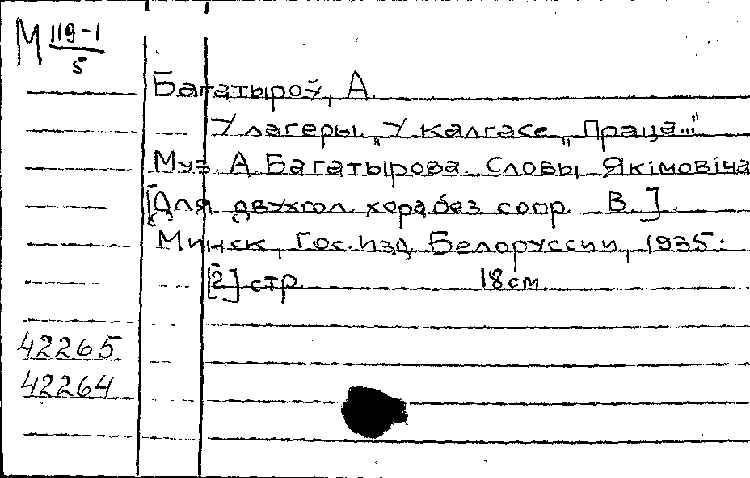 М 119-1
5
Багатыроў, А
У лагеры. „У калгасе „Праца..."
Муз. А. Багатырова. Словы Якімовіча
[Для двухгол. хора без сопр. В.]
Минск, Гос. изд. Белоруссии, 1935.
[2] стр. 18 см
42265
42264